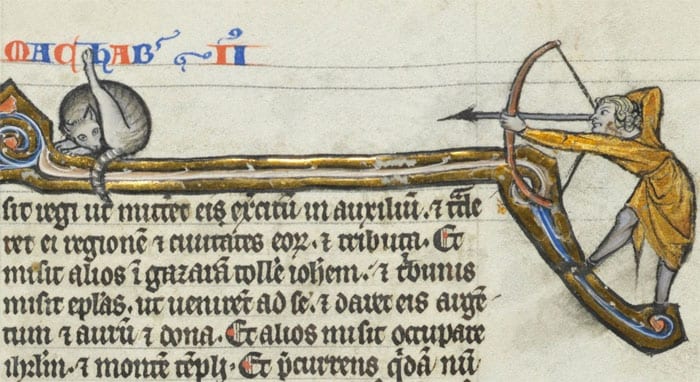 MACHABˀ II
sit regi ut mitteret eis exˀcitū in auxiliū. ⁊ t̃de
ret ei regionē ⁊ ciuitates eoꝝ. ⁊ tributa. Et
misit alios ī gazarā tollˀe iohem̄. ⁊ t̓bunis
misit ep̄las. ut uenirēt ad se. ⁊ daret eis argē
tum ⁊ aurū ⁊ dona. Et alios misit occupare
ihrl̄m. ⁊ montē tēpli. Et p̄currens q̓dā nū